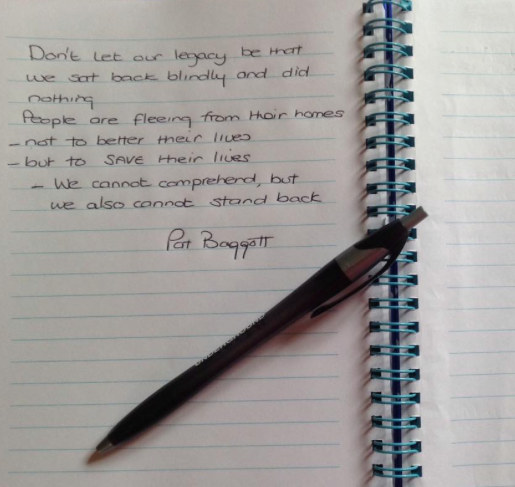 Don't let our legacy be that
we sat back blindly and did
nothing
People are fleeing from their homes
- not to better their lives
- but to SAVE their lives
- We cannot comprehend, but
we also cannot stand back
Pat Baggott